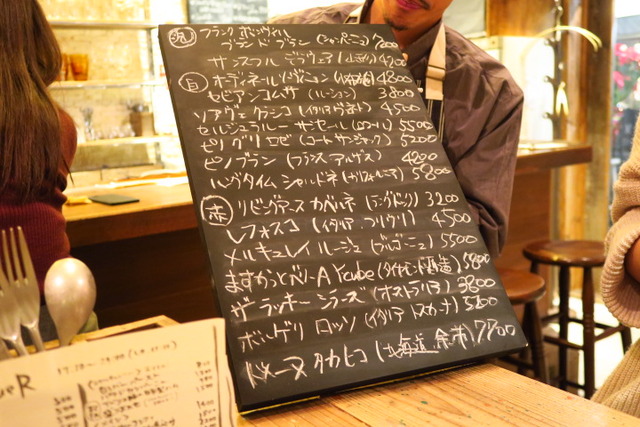 泡 フランク ボンヴィル
ブランドブラン (シャンパーニュ) 7200
サンスフル デラウェア (山形) 4200
白 オーディネール (日本) 4800
セビアンコムサ (ルーション) 3800
ソアヴェクラシコ (イタリア ヴェネト) 4500
セルシュラルー ザ セール (ロワール) 5500
ピノグリ ロゼ (コート 5200
ピノブラン (フランス アルザス) 4200
ロングタイム シャルドネ (カリフォルニア) 5800
赤 リビングアース カベルネ (ラングドック) 3200
レフォスコ (イタリア フリウリ) 4500
メルキュレイ ルージュ (ブルゴーニュ) 5500
ますかっとベリーA Ycube (ダイヤモンド酒造) 5800
ザ ラッキー シラーズ (オーストラリア) 3800
ボルゲリ ロッソ (イタリア トスカーナ) 5200
ドメーヌ タカヒコ (北海道 余市) 7700